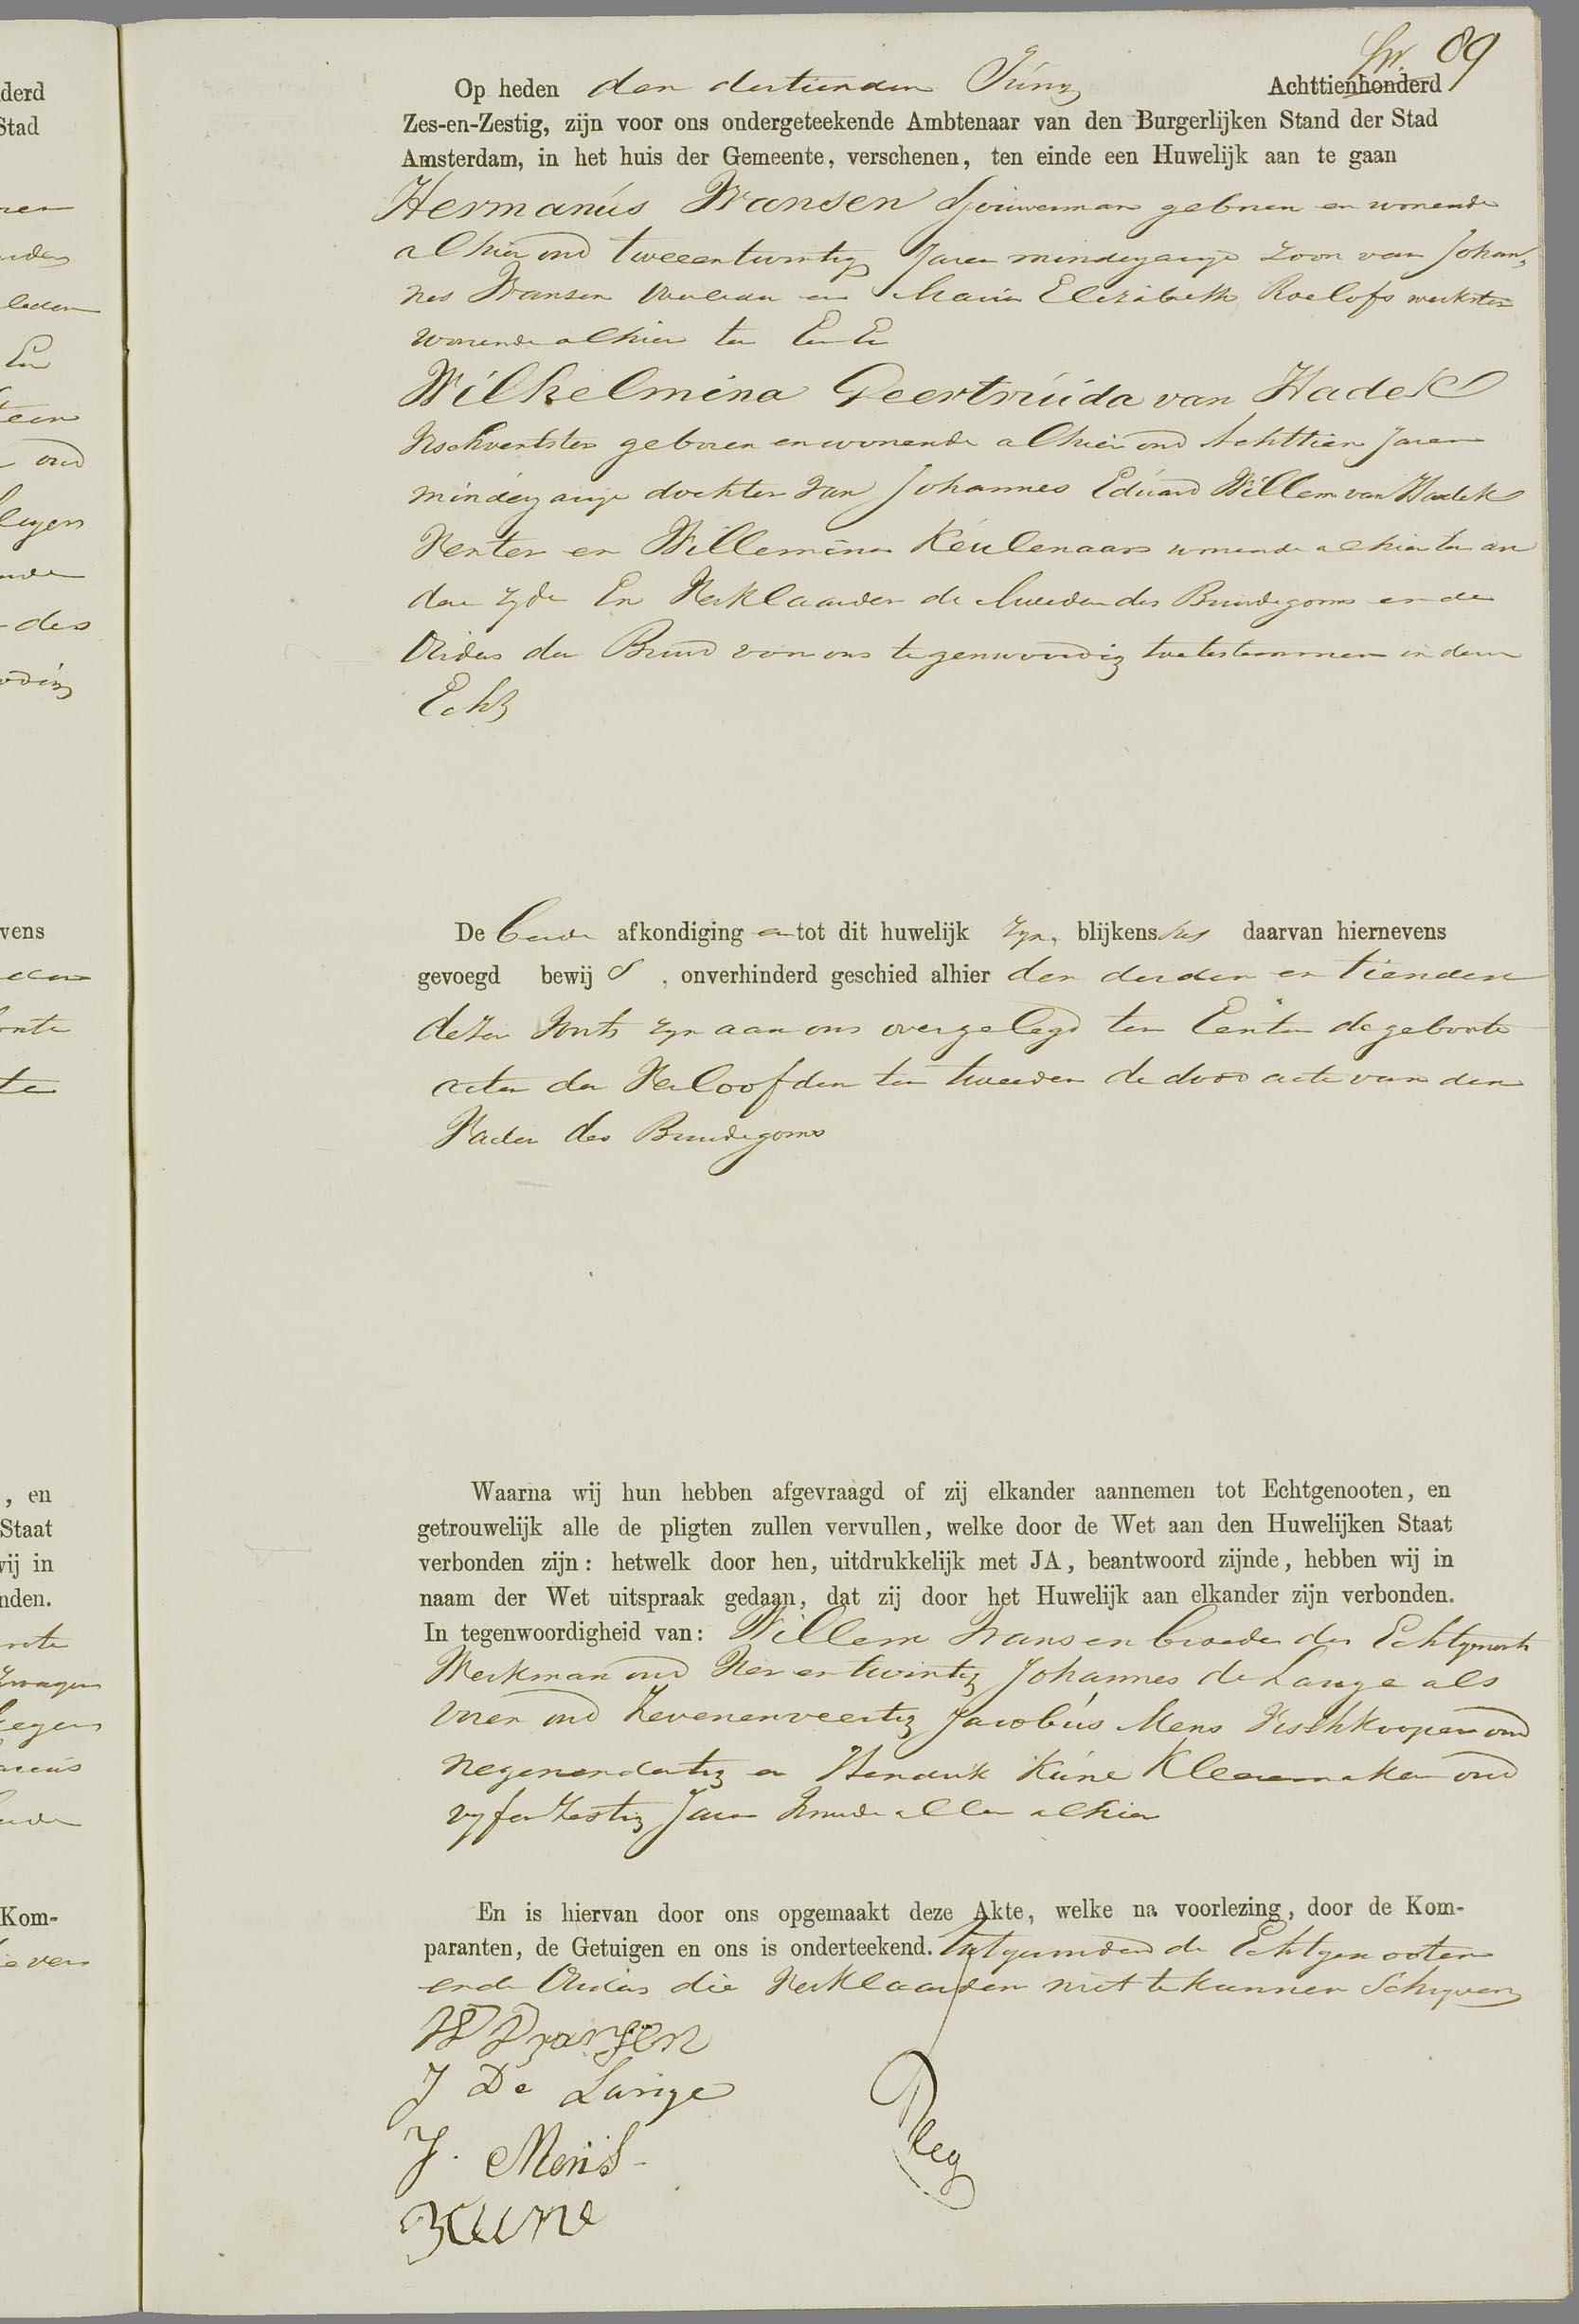 derd
Stad
leden
En
oud
des
vens
, en
Staat
wij in
nden.
Kom-
89
Op heden den dertienden Juny Achttienhonderd
Zes-en-Zestig, zijn voor ons ondergeteekende Ambtenaar van den Burgerlijken Stand der Stad
Amsterdam, in het huis der Gemeente, verschenen, ten einde een Huwelijk aan te gaan
Hermanús Fransen Sjouwerman geboren en wonende
alhier oud tweeentwintig Jaren minderjarige zoon van Johan,
nes Fransen overleden en Maria Elizabeth Roelofs werkster
wonende alhier ter Eenre En
Wilhelmina Geertrúida van Hadek
Vischventster geboren en wonende alhier oud Achttien Jaren
minderjarige dochter van Johannes Eduard Willem van Hadek
Venter en Willemina Keulenaars wonende alhier ter an
dere zyde En Verklaarden de Moeder des Bruidegoms en de
Ouders der Bruid voor ons tegenwoordig toetestemmen in dezen
Echt
De beide afkondiging en tot dit huwelijk zyn, blijkens het daarvan hiernevens
gevoegd bewijs, onverhinderd geschied alhier den derden en tienden
dezer Voorts zyn aan ons overgelegd ten Eersten de geboorte
acten der Verloofden ten tweeden de dood acte van den
Vader des Bruidegoms
Waarna wij hun hebben afgevraagd of zij elkander aannemen tot Echtgenooten, en
getrouwelijk alle de pligten zullen vervullen, welke door de Wet aan den Huwelijken Staat
verbonden zijn: hetwelk door hen, uitdrukkelijk met JA, beantwoord zijnde, hebben wij in
naam der Wet uitspraak gedaan, dat zij door het Huwelijk aan elkander zijn verbonden.
In tegenwoordigheid van: Willem Fransen broeder der Echtgenoote
Werkman oud Vierentwintig Johannes de Lange als
Voren oud Zevenenveertig Jacobús Mens Vischkooper oud
Negenendertig en Hendrik Kúne Kleermaker oud
vyfenzestig Jaren Wonende allen alhier
En is hiervan door ons opgemaakt deze Akte, welke na voorlezing, door de Kom-
paranten, de Getuigen en ons is onderteekend. Uitgezonderd de Echtgenooten
en de Ouders die Verklaarden niet te kunnen Schryven
W Fransen
J De Lange
J. Mens
Kune